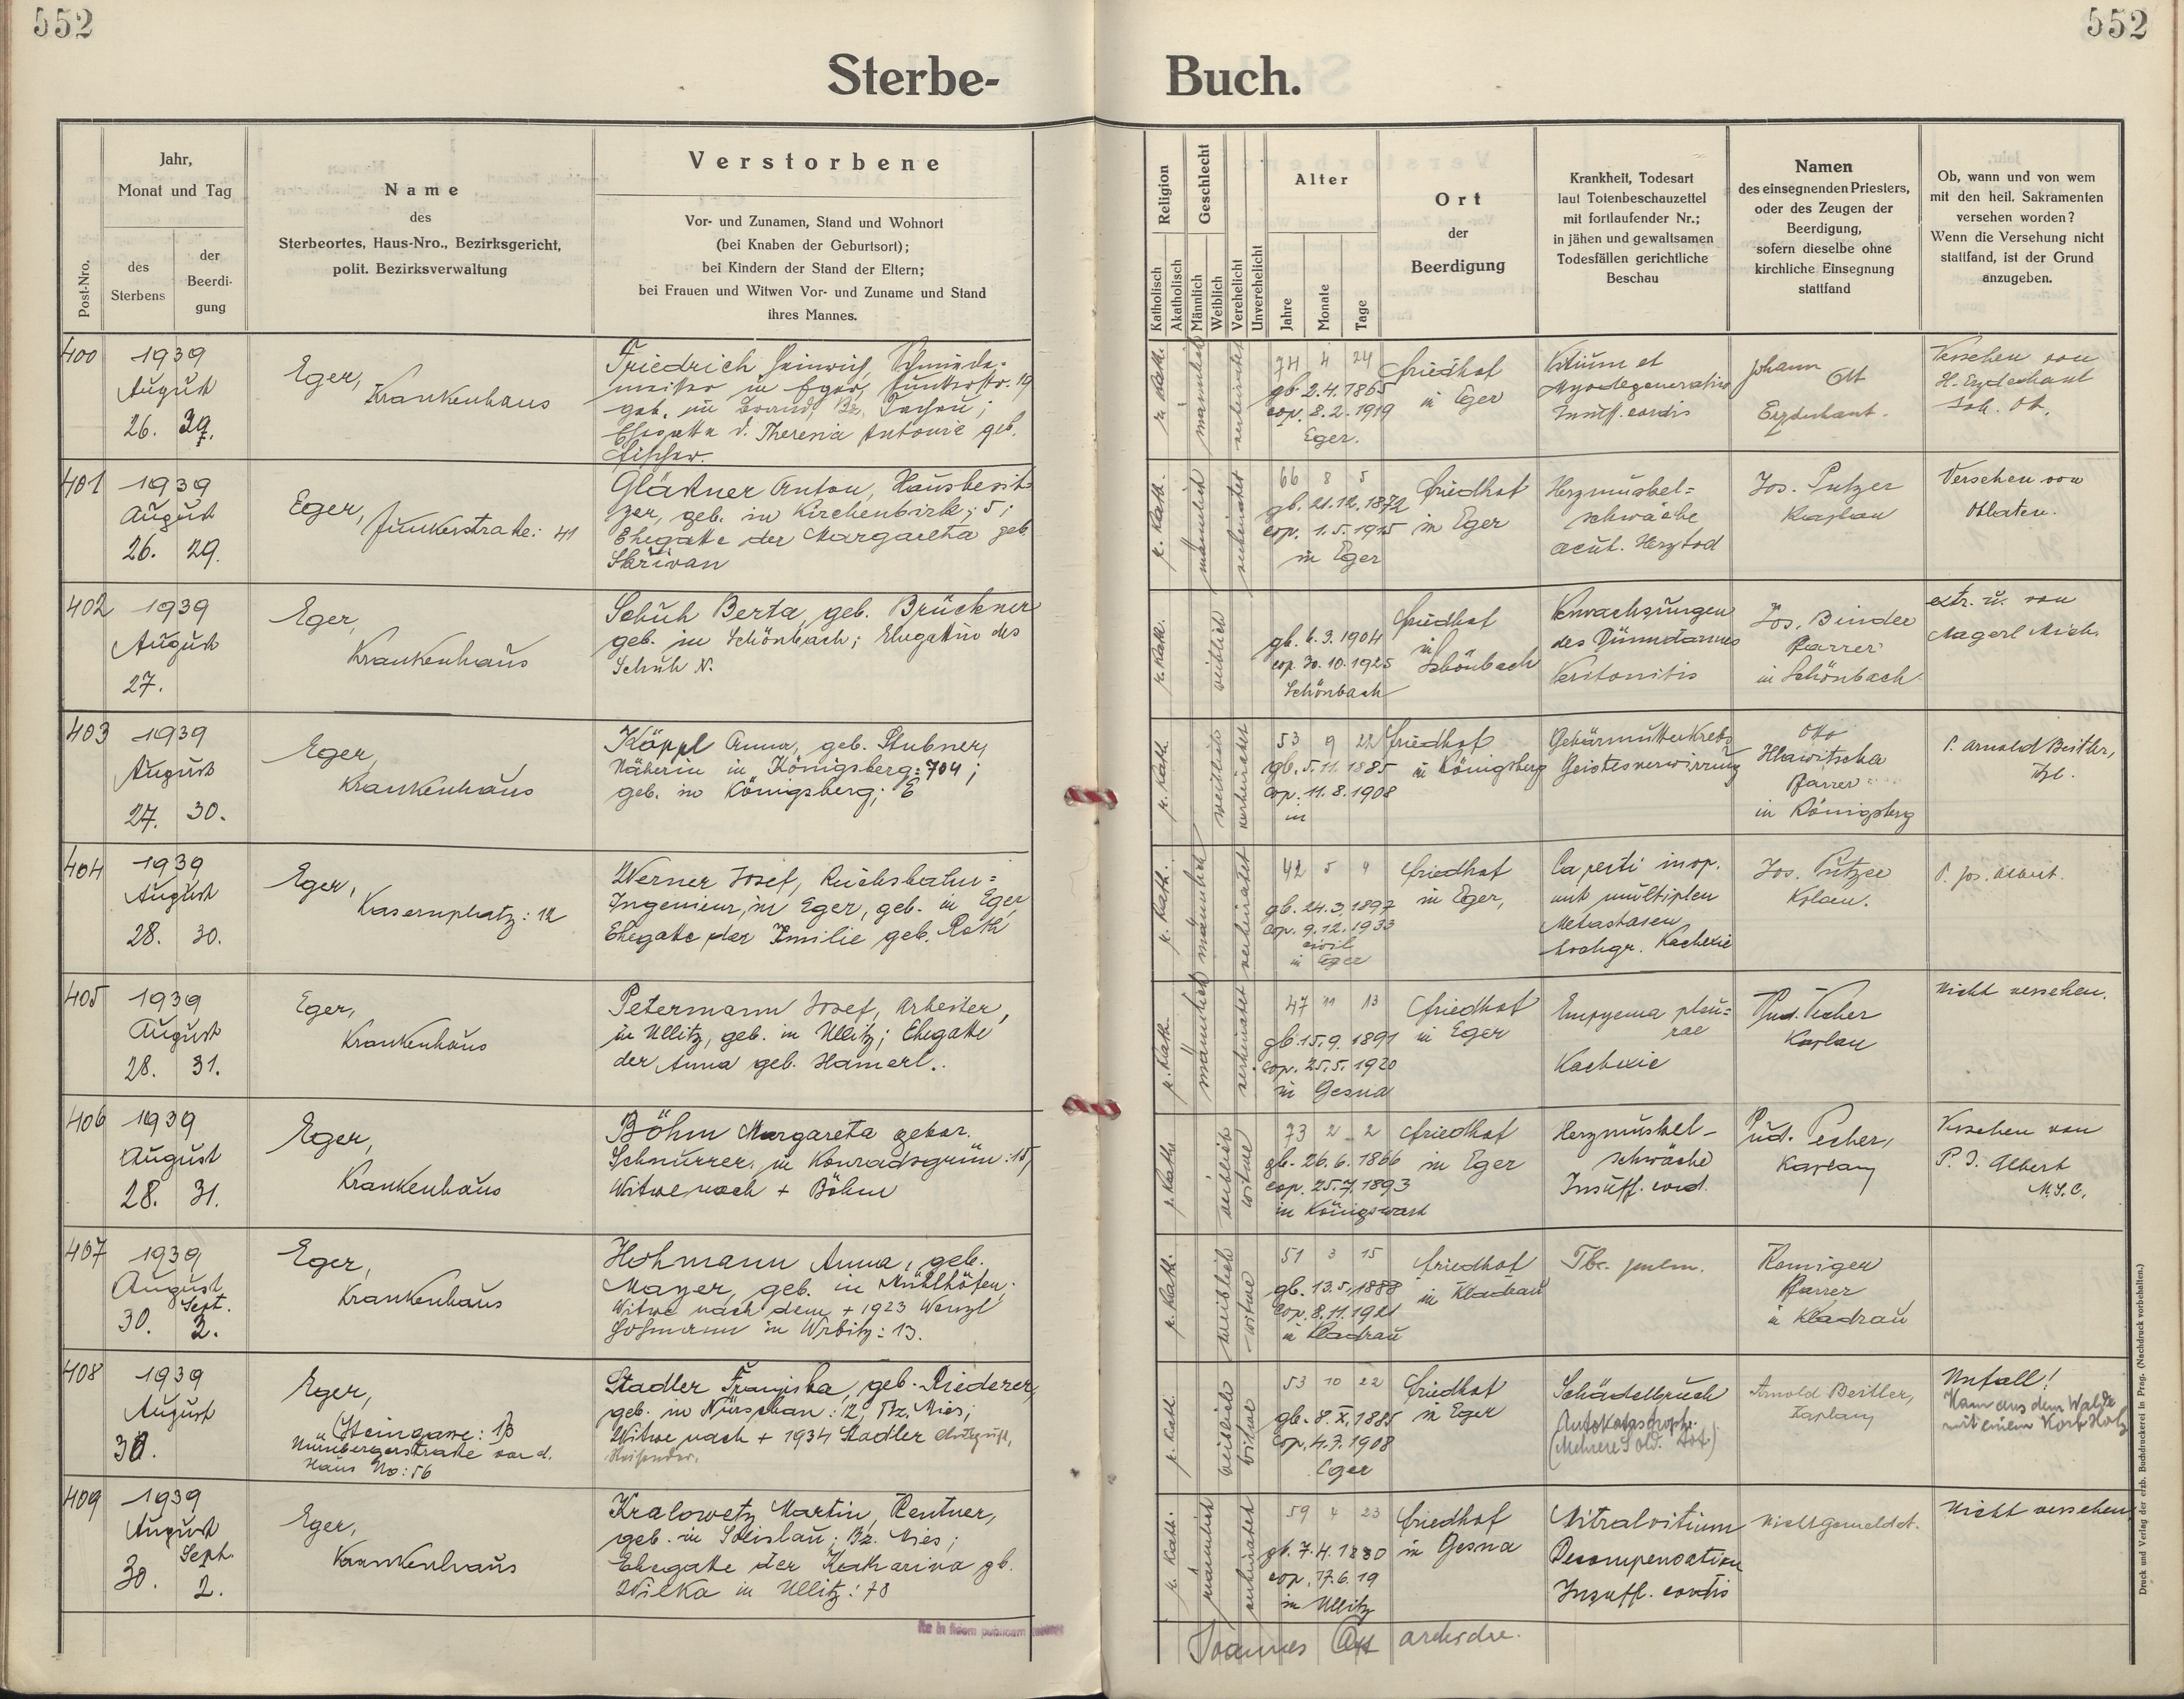 552
552
Sterbe- Buch.
Post-Nro.
Jahr,
Monat und Tag
des
Sterbens
der
Beerdi-
gung
Name
des
Sterbeortes, Haus-Nro., Bezirksgericht,
polit. Bezirksverwaltung
Verstorbene
Vor- und Zunamen, Stand und Wohnort
(bei Knaben der Geburtsort);
bei Kindern der Stand der Eltern;
bei Frauen und Witwen Vor- und Zuname und Stand
ihres Mannes.
Religion
Katholisch
Akatholisch
Geschlecht
Männlich
Weiblich
Verehelicht
Unverehelicht
Alter
Jahre
Monate
Tage
Ort
der
Beerdigung
Krankheit, Todesart
laut Totenbeschauzettel
mit fortlaufender Nr.;
in jähen und gewaltsamen
Todesfällen gerichtliche
Beschau
Namen
des einsegnenden Priesters,
oder des Zeugen der
Beerdigung,
sofern dieselbe ohne
kirchliche Einsegnung
stattfand
Ob, wann und von wem
mit den heil. Sakramenten
versehen worden?
Wenn die Versehung nicht
stattfand, ist der Grund
anzugeben.
400
1939
August
26. 29.
Eger,
Krankenhaus
Friedrich Heinrich, Schmiede-
meister in Eger, Junkerstr. 19
geb. in Brand, Bz. Tachau;
Ehegatte d. Theresia Antonie geb.
Fischer.
r. kath.
männlich
verheiratet
74 4 24
gb. 2.4.1865
cop. 8.2.1919
Eger.
Friedhof
in Eger
Vitium et
Myodegeneratio
Insuff. cordis
Johann
Ott
Erzdechant.
Versehen von
H. Erzdechant
Joh. Ott.
401
1939
August
26. 29.
Eger,
Junkerstraße: 41
Gläßner Anton, Hausbesit-
zer, geb. in Kirchenbirk; 5;
Ehegatte der Margareta geb.
Skřivan
r. kath.
männlich
verheiratet
66 8 5
gb. 21.12.1872
cop. 1.5.1915
in Eger
Friedhof
in Eger
Herzmuskel=
schwäche
acut. Herztod
Jos. Putzer
Kaplan
Versehen von
Oblaten.
402
1939
August
27.
Eger,
Krankenhaus
Schuh Berta, geb. Brückner
geb. in Schönbach; Ehegattin des
Schuh N.
r. kath.
weiblich
gb. 6.3.1904
cop. 30.10.1925
Schönbach
Friedhof
in
Schönbach
Verwachsungen
des Dünndarmes
Peritonitis
Jos. Binder
Pfarrer
in Schönbach
extr. u. von
Nagerl Mich.
403
1939
August
27. 30.
Eger,
Krankenhaus
Köppl Anna, geb. Stubner,
Näherin in Königsberg: 704;
geb. in Königsberg; E
r. kath.
weiblich
verheiratet
53 9 22
gb. 5.11.1885
cop. 11.8.1908
in
Friedhof
in Königsberg
Gebärmutterkrebs
Geistesverwirrung
Otto
Hlawitscha
Pfarrer
in Königsberg
P. Arnold Beitler,
Kpl.
404
1939
August
28. 30.
Eger,
Kasernplatz: 12
Werner Josef, Reichsbahn=
Ingenieur, in Eger, geb. in Eger
Ehegatte der Emilie geb. Roth
r. kath.
männlich
verheiratet
42 5 4
gb. 24.3.1897
cop. 9.12.1933
civil
in Eger
Friedhof
in Eger,
Ca recti inop.
mit multiplen
Metastasen
hochgr. Kachexie
Jos. Putzer
Kplan.
P. Jos. Albert.
405
1939
August
28. 31.
Eger,
Krankenhaus
Petermann Josef, Arbeiter,
in Ullitz, geb. in Ullitz; Ehegatte
der Anna geb. Hamerl.
r. kath.
männlich
verheiratet
47 11 13
gb. 15.9.1891
cop. 25.5.1920
in Gesna
Friedhof
in Eger
Empyema pleu=
rae
Kachexie
Rud. Pecher
Kaplan
Nicht versehen.
406
1939
August
28. 31.
Eger,
Krankenhaus
Böhm Margareta gebor.
Schnurrer, in Konradsgrün: 15,
Witwe nach + Böhm
r. kath.
weiblich
witwe
73 2 2
gb. 26.6.1866
cop. 25.7.1893
in Königswart
Friedhof
in Eger
Herzmuskel-
schwäche
Insuff. cord.
Rud. Pecher,
Kaplan
Versehen von
P. J. Albert
M.S.C.
407
1939
August
Sept.
30. 2.
Eger,
Krankenhaus
Hohmann Anna, geb.
Mayer, geb. in Mühlhöfen;
Witwe nach dem + 1923 Wenzl
Hohmann in Wrbitz: 13.
r. kath.
weiblich
witwe
51 3 15
gb. 13.5.1888
cop. 8.11.1921
in Kladrau
Friedhof
in Kladrau
Tbc. pulm.
Remiger
Pfarrer
in Kladrau
408
1939
August
30.
Eger,
Steingasse: 13
Nürnbergerstraße vor d.
Haus No: 56
Stadler Franziska, geb. Riederer,
geb. in Nürschan: 12, Bz. Mies;
Witwe nach + 1934 Stadler
Reisender.
r. kath.
weiblich
witwe
53 10 22
gb. 8.X.1885
cop. 4.7.1908
Eger
Friedhof
in Eger
Schädelbruch
Autokatastrophe.
(Mehrere Sold. tot)
Arnold Beitler,
Kaplan
Unfall!
Kam aus dem Walde
mit einem Korb Holz
409
1939
August
Sept.
30. 2.
Eger,
Krankenhaus
Kralowetz Martin, Rentner,
geb. in Solislau; Bz. Mies;
Ehegatte der Katharina gb.
Wilka in Ullitz: 78
r. kath.
männlich
verheiratet
59 4 23
gb. 7.4.1880
cop. 17.6.19
in Ullitz
Friedhof
in Gesna
Mitralvitium
Decompensation
Insuff. cordis
Nicht gemeldet.
Nicht versehen
Ita in fidem publicam
Joannes Ott archidec.
Druck und Verlag der erzb. Buchdruckerei in Prag. (Nachdruck vorbehalten.)